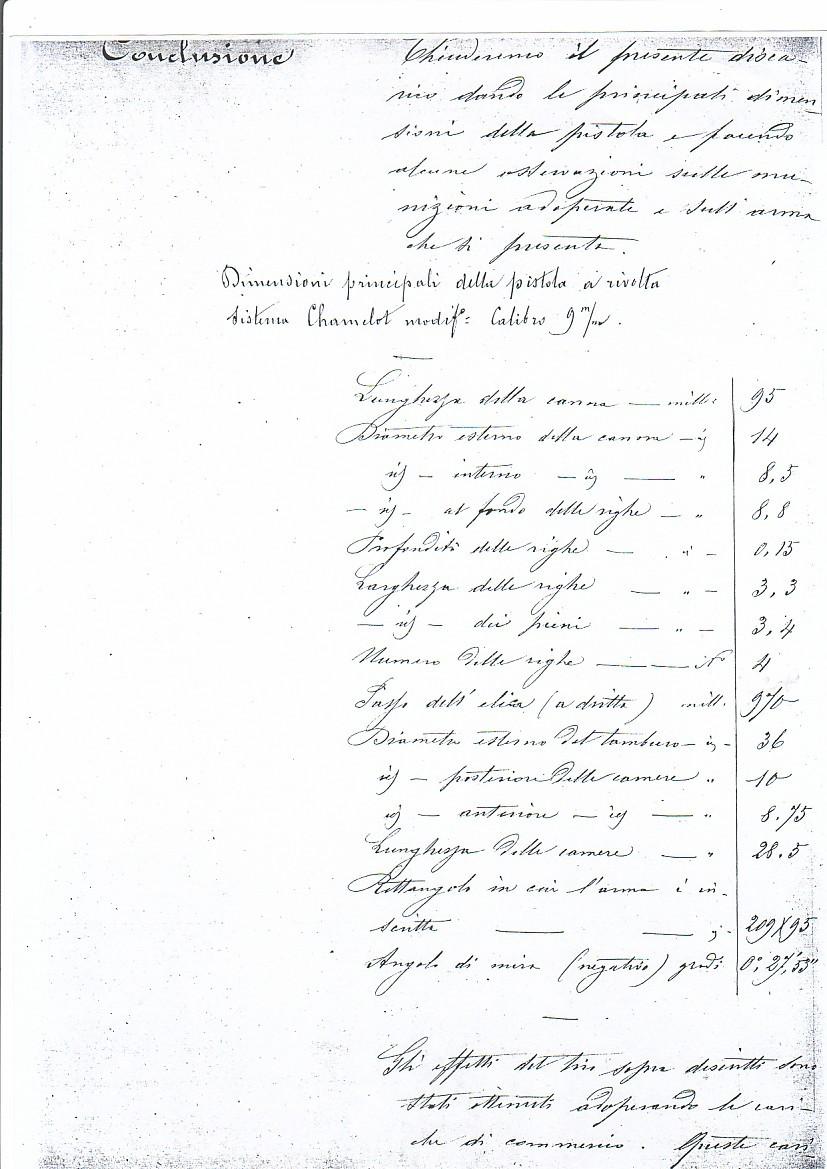 Conclusione
Chiuderemo il presente disca-
rico dando le principali dimen
sioni della pistola e facendo
alcune osservazioni sulle mu-
nizioni adoperate e sull'arma
che si presenta.
Dimensioni principali della pistola a rivolta
sistema Chamelot modif°: Calibro 9 m/m.
Lunghezza della canna — mill: 95
Diametro esterno della canna — id 14
id — interno — id — " 8,5
— id — al fondo delle righe — " 8,8
Profondità delle righe — " — 0,15
Larghezza delle righe — " — 3,3
— id — dei pieni — " — 3,4
Numero delle righe — N° 4
Passo dell'elica (a dritta) mill. 970
Diametro esterno del tamburo — id — 36
id — posteriore delle camere " 10
id — anteriore — id — " 8.75
Lunghezza delle camere — " 28.5
Rettangolo in cui l'arma è in-
scritta — — 209X95
Angolo di mira (negativo) gradi 0°,27',53"
Gli effetti del tiro sopra descritti sono
stati ottenuti adoperando le cari-
che di commercio. Queste cari